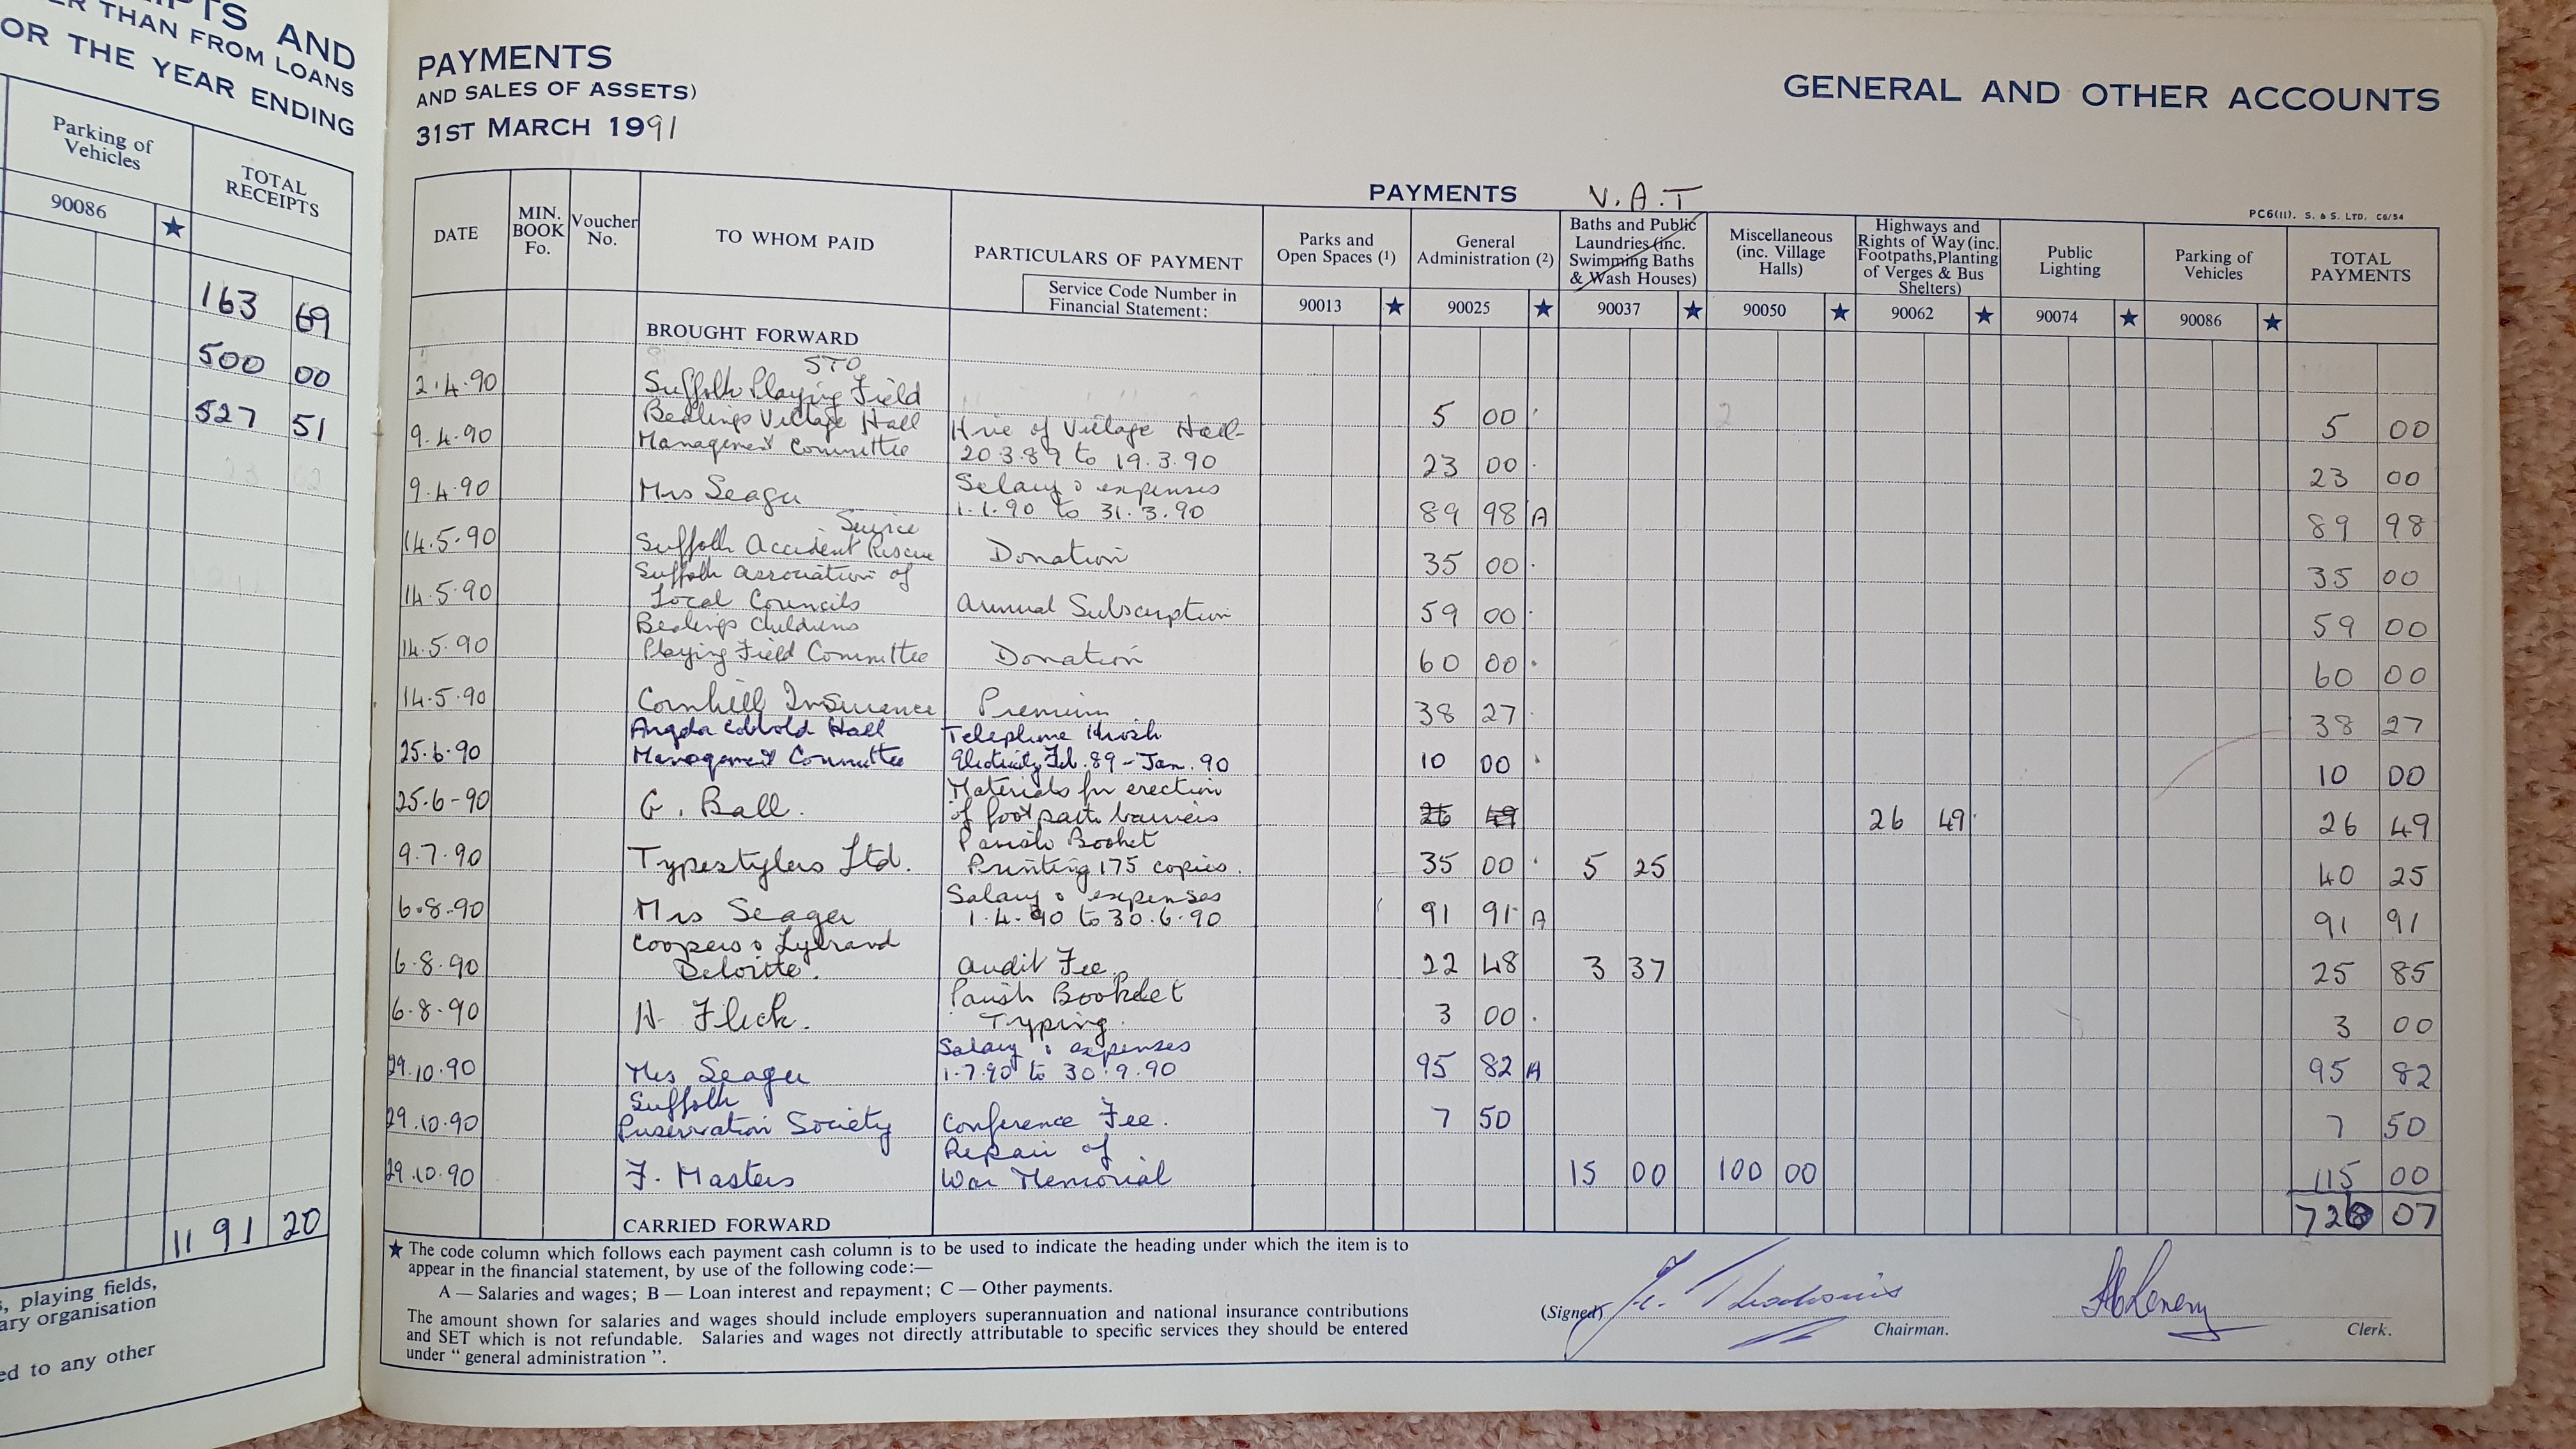 PTS AND
ER THAN FROM LOANS
OR THE YEAR ENDING
Parking of
Vehicles
TOTAL
RECEIPTS
90086 ★
163 69
500 00
527 51
1191 20
s, playing fields,
ary organisation
ed to any other
PAYMENTS
AND SALES OF ASSETS)
31ST MARCH 1991
GENERAL AND OTHER ACCOUNTS
PAYMENTS V.A.T
PC6(11). S. & S. LTD. C6/54
DATE
MIN.
BOOK
Fo.
Voucher
No.
TO WHOM PAID
PARTICULARS OF PAYMENT
Service Code Number in
Financial Statement:
Parks and
Open Spaces (1)
General
Administration (2)
Baths and Public
Laundries (inc.
Swimming Baths
& Wash Houses)
Miscellaneous
(inc. Village
Halls)
Highways and
Rights of Way (inc.
Footpaths, Planting
of Verges & Bus
Shelters)
Public
Lighting
Parking of
Vehicles
TOTAL
PAYMENTS
90013 ★ 90025 ★ 90037 ★ 90050 ★ 90062 ★ 90074 ★ 90086 ★
BROUGHT FORWARD
STO
2.4.90 Suffolk Playing Field 5 00 5 00
Bealings Village Hall Hire of Village Hall
9.4.90 Management Committee 20.3.89 to 19.3.90 23 00 23 00
Salary & expenses
9.4.90 Mrs Seager 1.1.90 to 31.3.90 89 98 A 89 98
Service
14.5.90 Suffolk Accident Rescue Donation 35 00 35 00
Suffolk Association of
14.5.90 Local Councils Annual Subscription 59 00 59 00
Bealings Childrens
14.5.90 Playing Field Committee Donation 60 00 60 00
14.5.90 Cornhill Insurance Premium 38 27 38 27
Angela Cobbold Hall Telephone Kiosk
25.6.90 Management Committee Electricity Feb. 89 - Jan. 90 10 00 10 00
Materials for erection
25.6-90 G. Ball. of footpath barriers 26 49 26 49 26 49
Parish Booket
9.7.90 Typestylers Ltd. Printing 175 copies. 35 00 5 25 40 25
Salary & expenses
6.8.90 Mrs Seager 1.4.90 to 30.6.90 91 91 A 91 91
Coopers & Lybrand
6.8.90 Deloitte. Audit Fee. 22 48 3 37 25 85
Parish Booklet
6.8.90 H. Fleck. Typing. 3 00 3 00
Salary & expenses
29.10.90 Mrs Seager 1.7.90 to 30.9.90 95 82 A 95 82
Suffolk
29.10.90 Preservation Society Conference Fee. 7 50 7 50
Repair of
29.10.90 F. Masters War Memorial 15 00 100 00 115 00
CARRIED FORWARD 726 07
★ The code column which follows each payment cash column is to be used to indicate the heading under which the item is to
appear in the financial statement, by use of the following code:—
A — Salaries and wages; B — Loan interest and repayment; C — Other payments.
The amount shown for salaries and wages should include employers superannuation and national insurance contributions
and SET which is not refundable. Salaries and wages not directly attributable to specific services they should be entered
under "general administration".
(Signed)
Chairman.
Clerk.